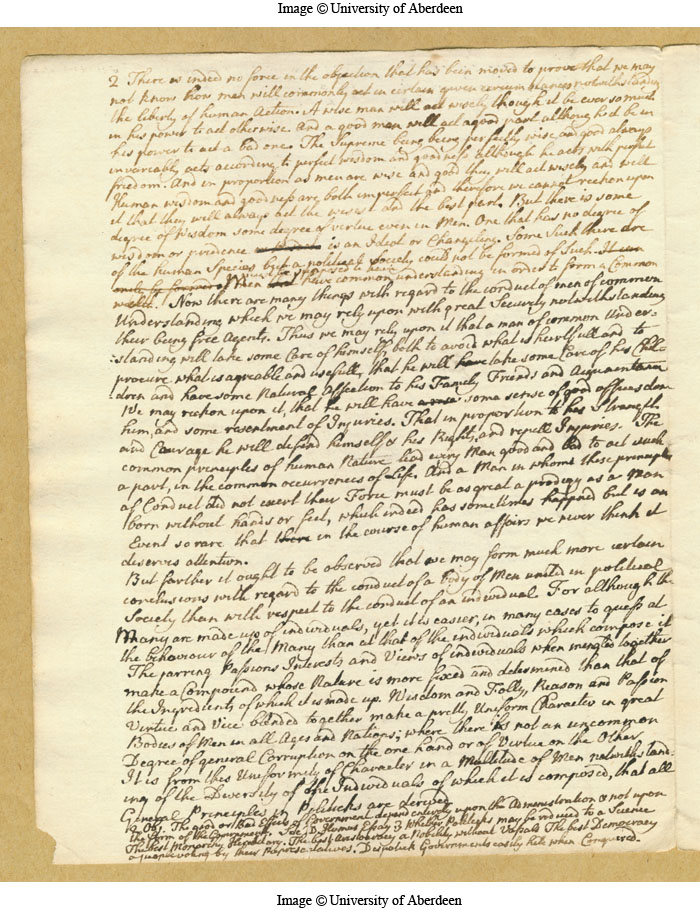 Image © University of Aberdeen
2 There is indeed no force in the objection that has been moved to prove that we may
not know how men will commonly act in certain given circumstances notwithstanding
the liberty of human Action. A wise man will act wisely though it be ever so much
in his power to act otherwise. And a good man will act a good part although it be in
his power to act a bad one. The Supreme being being perfectly wise and good always
invariably acts according to perfect wisdom and goodness although he acts with perfect
freedom. And in proportion as men are wise and good they will act wisely and well
Human wisdom and goodness are both imperfect and therefore we cannot reckon upon
it that they will always act the wisest and the best part. But there is some
degree of Wisdom some degree of virtue even in Men. One that has no degree of
wisdom or prudence is an Idiot or Changling. Some Such there are
of the human Species but a political Society could not be formed of Such. It
only be formed of Men supposed to have common understanding in order to form a Common
wealth. Now there are many things with regard to the conduct of men of common
Understanding which we may rely upon with great Security notwithstanding
their being free Agents. Thus we may rely upon it that a man of common Under-
standing will take some Care of himself both to avoid what is hurtfull and to
procure what is agreable and usefull, that he will have take some Care of his Chil
dren and have some Natural Affection to his Family Friends and Acquaintance
We may reckon upon it, that he will have some sense of good offices done
him, and some resentment of Injuries. That in proportion to his Strength
and Courage he will defend himself & his Right, and repell Injuries. The
common principles of human Nature lead every Man good and bad to act such
a part, in the common occurrences of Life. And a Man in whom these principles
of Conduct did not exert their Force must be as great a prodigy as a Man
born without hands or feet, which indeed has sometimes happend but is an
Event so rare that there in the course of human affairs we never think it
deserves attention.
But farther it ought to be observed that we may form much more certain
conclusions with regard to the conduct of a Body of Men united in political
Society than with respect to the conduct of an individual. For although the
Many are made up of individuals, yet it is easier, in many cases to guess at
the behaviour of the Many than at that of the individuals which compose it
The jarring Passions Interests and Views of individuals when mingled together
make a Compound whose Nature is more fixed and determined than that of
the Ingredients of which it is made up. Wisdom and Folly, Reason and Passion
Virtue and Vice blended together make a pretty Uniform Character in great
Bodies of Men in all Ages and Nations; where there is not an uncommon
Degree of general Corruption on the one hand or of Virtue on the Other
It is from this Uniformity of Character in a Multitude of Men notwithstand-
ing of the Diversity of the Individuals of which it is composed, that all
General Principles in Politicks are derived
2 Obj. The good or bad Effects of Government depend entirely upon the Administration & not upon
the Form of the Government. See D. Humes Essay 3 Whether Politicks may be reduced to a Science
The best Monarchy Hereditary. The best Aristocracy a Nobility without Vassals The best Democracy
a people voting by their Representatives. Despotick Governments easily kept when Conquered.
Image © University of Aberdeen